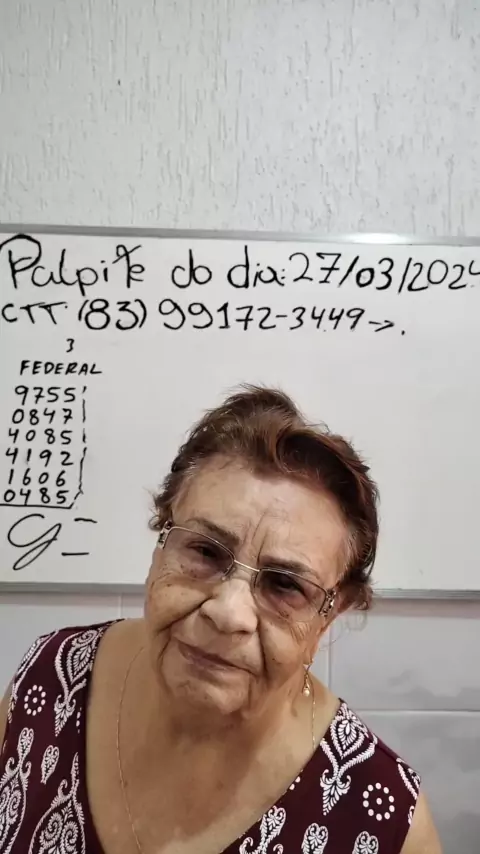 Palpite do dia: 27/03/2024
CTT: (83) 99172-3449 →.
3
FEDERAL
9755
0847
4085
4192
1606
0485